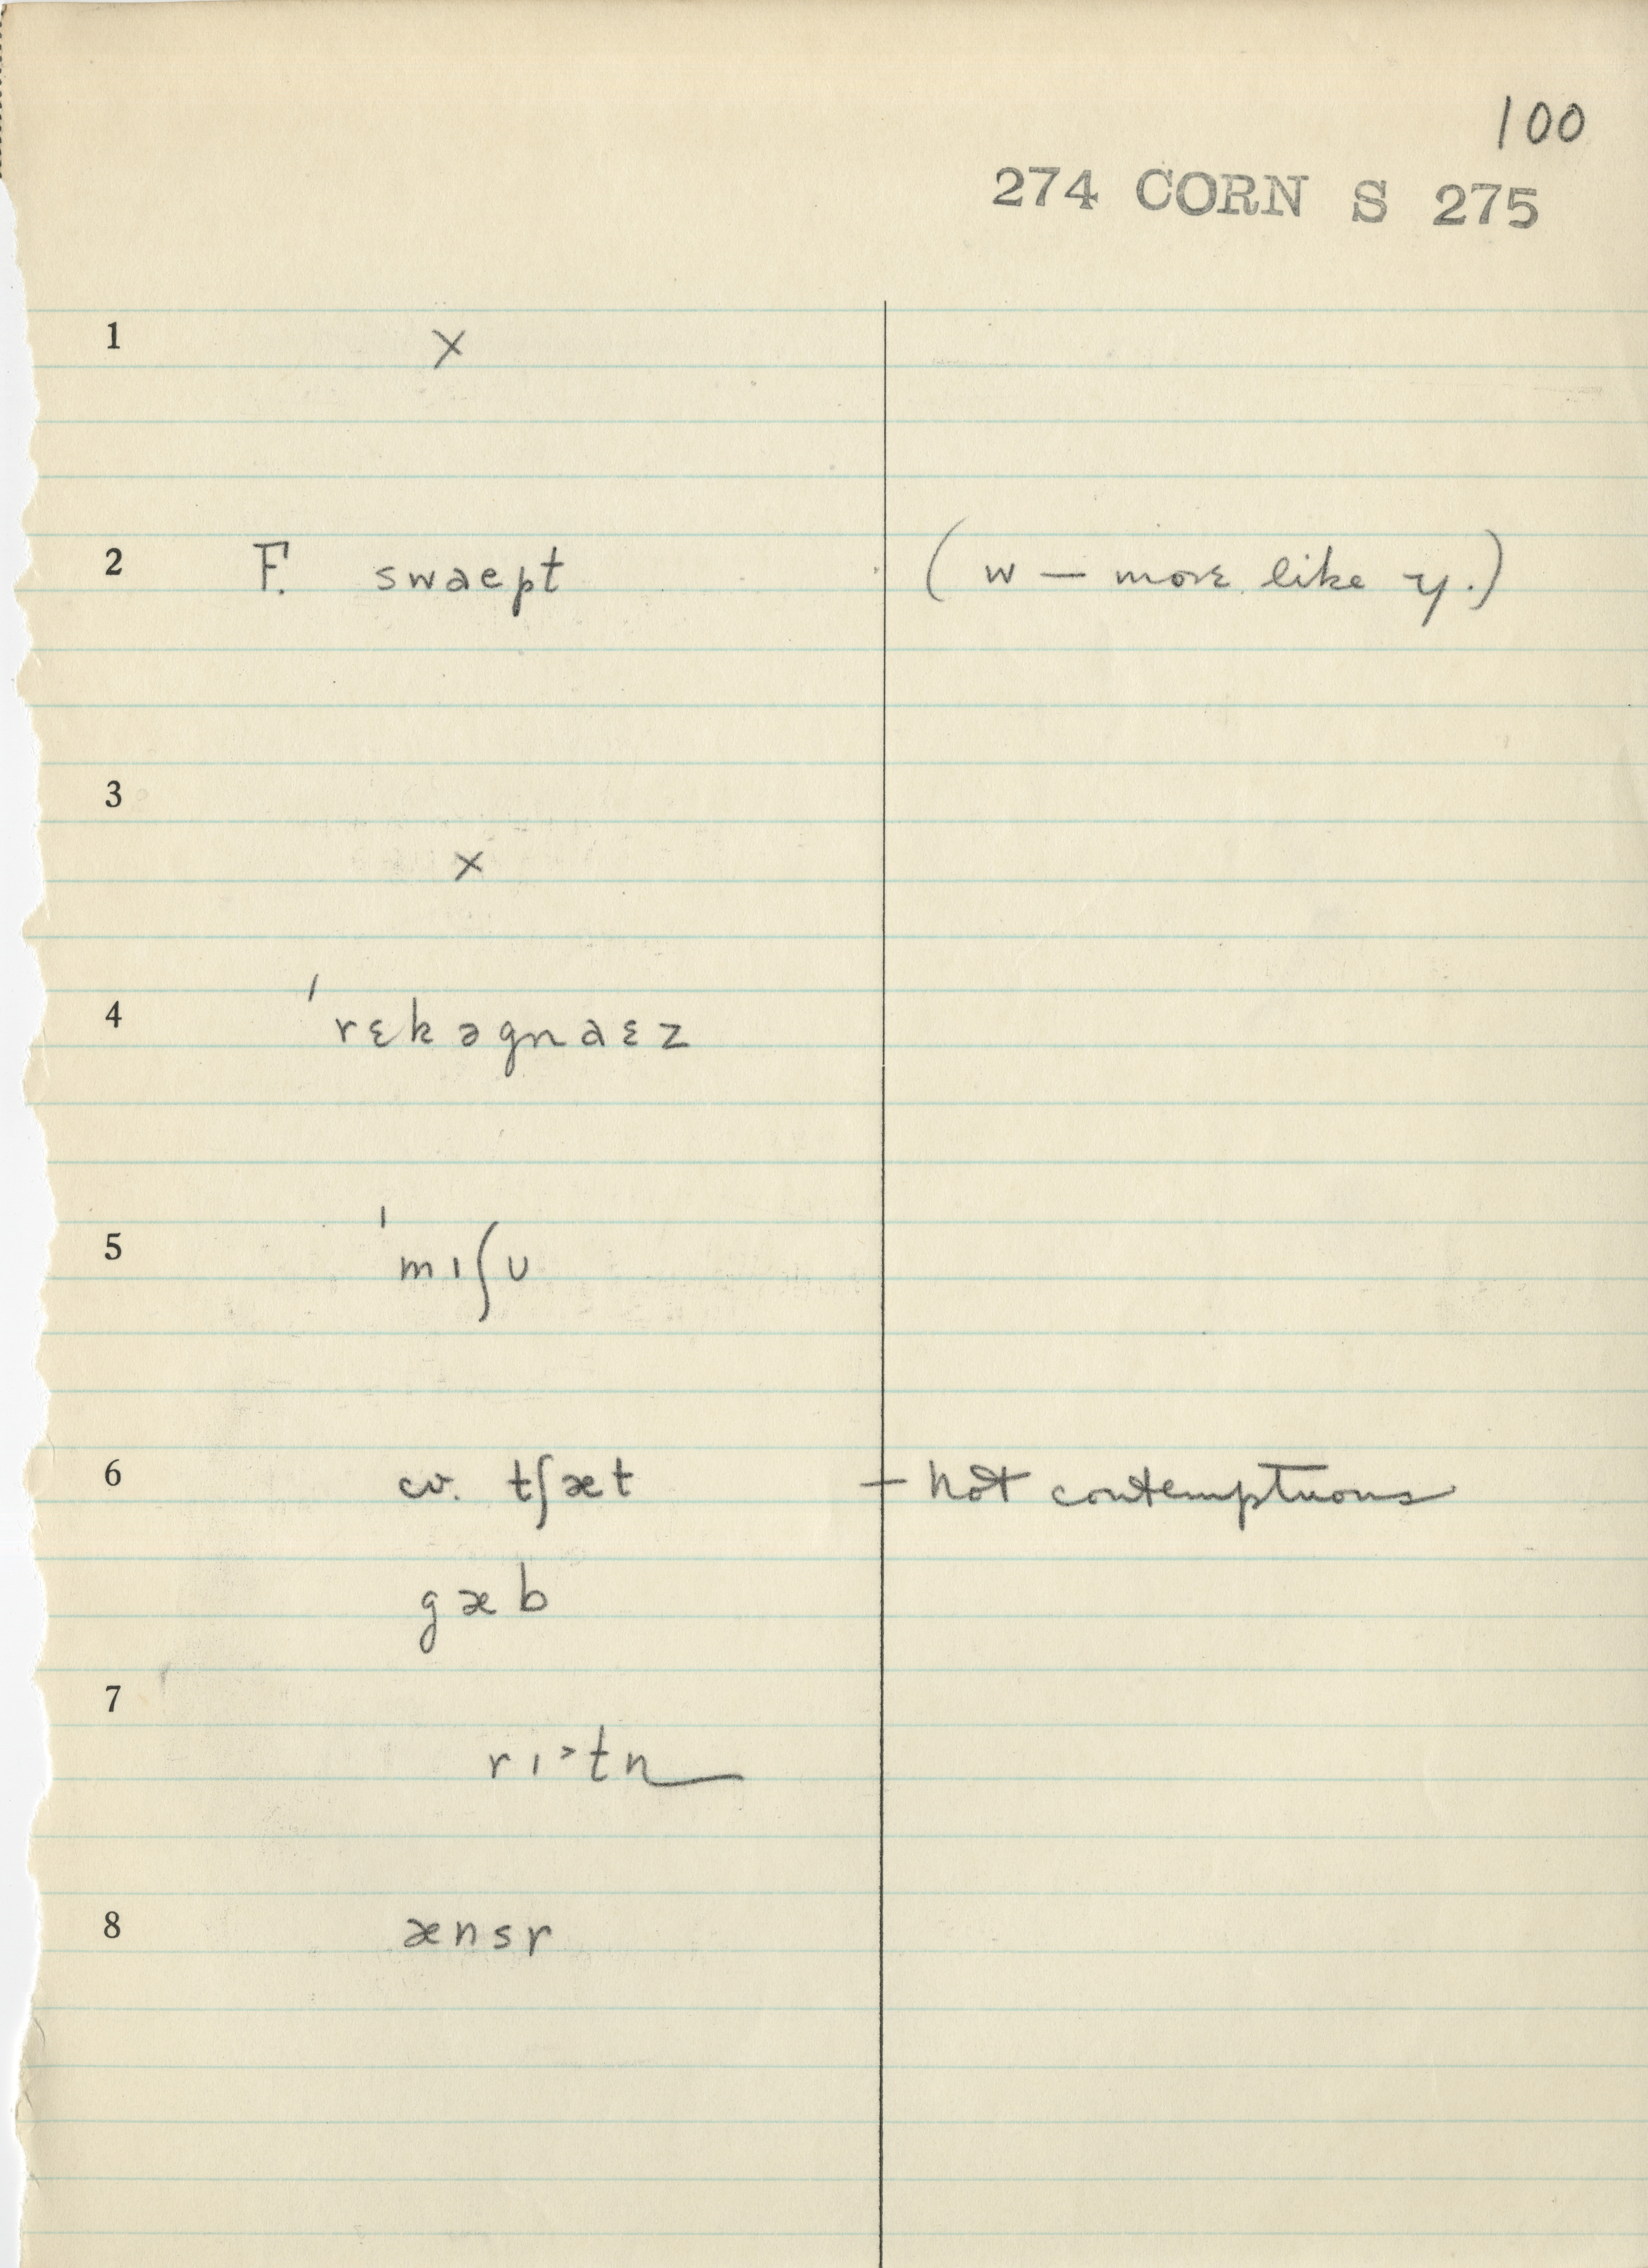 100
274 CORN S 275
1 ×
2 F. swaept (w — more like y.)
3
×
4 ˈrɛkəgnaɛz
5 ˈmɪʃʊ
6 cv. tʃæt — not contemptuous
gæb
7
rɪ˃tn
8 ænsr